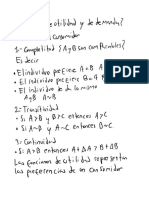 de utilidad y de demanda}
Consumidor
1- Completitud {A y B son comparables}
Es decir
• El individuo prefiere A > B
• El individuo prefiere B >
• El individuo le da lo mismo
A ~ B
2- Transitividad
• Si A > B y B > C entonces A > C
• Si A ~ B y A ~ C entonces B ~ C
3- Continuidad
• Si A > B entonces A + ΔA > B + ΔB
Las funciones de utilidad representan
las preferencias de un consumidor